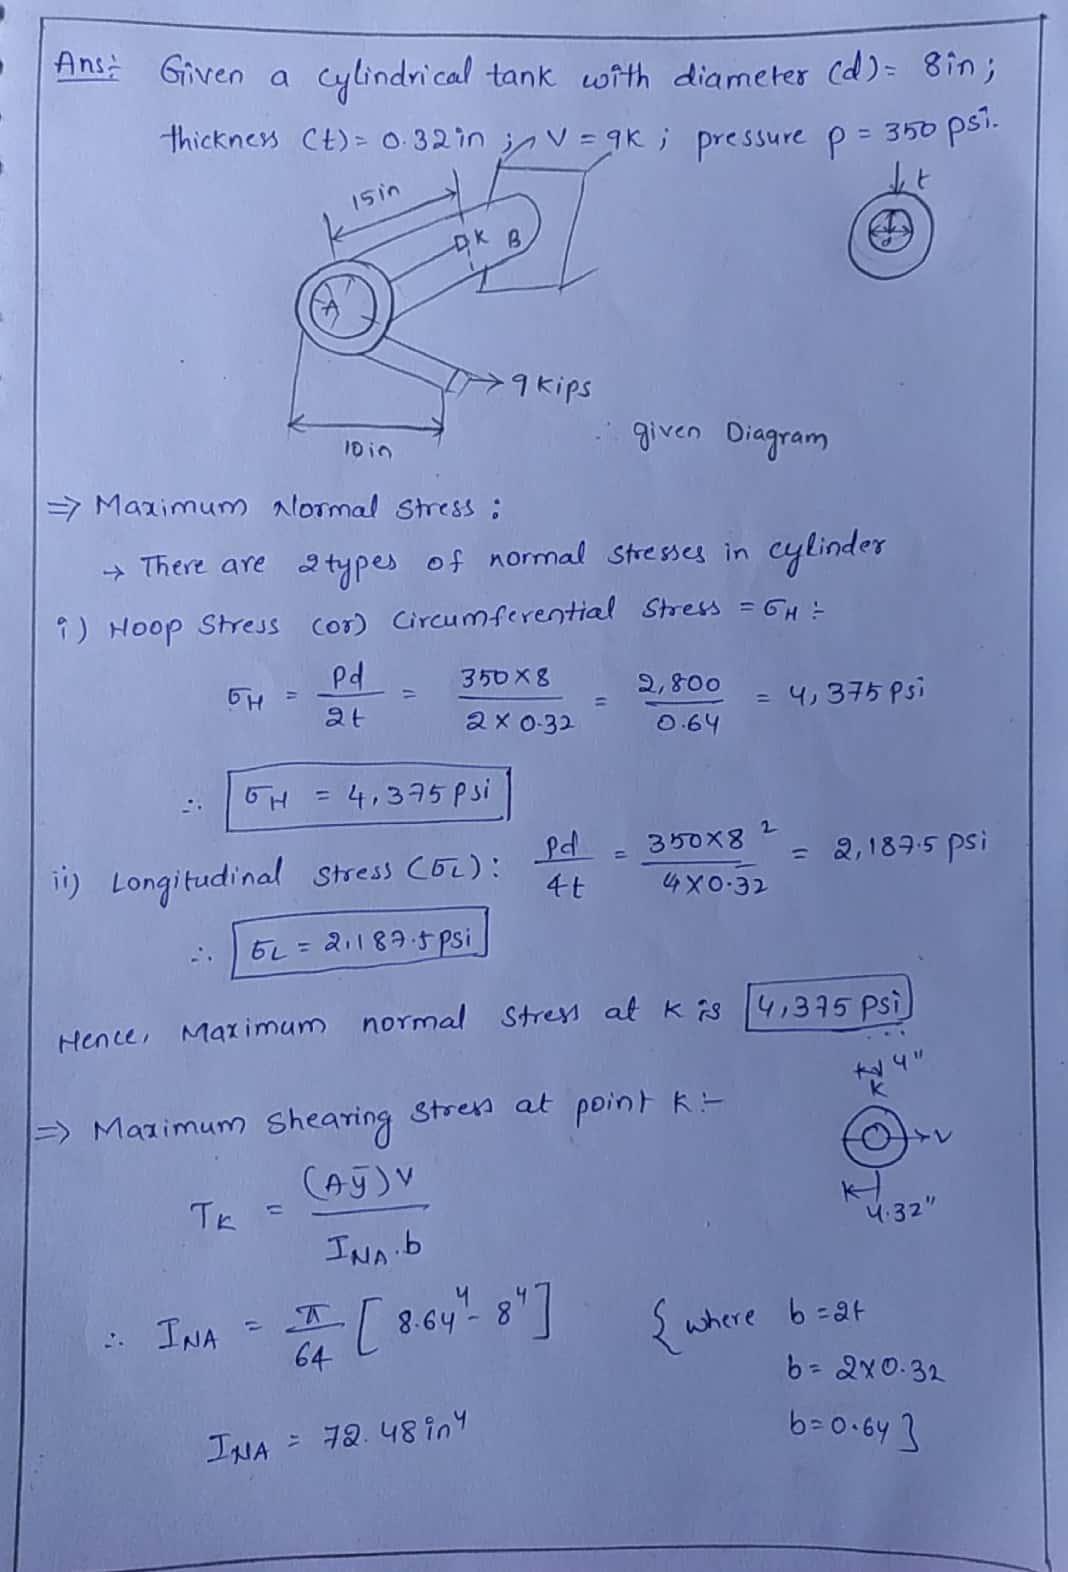 Ans:- Given a cylindrical tank with diameter (d) = 8in;
thickness (t) = 0.32in ; V = 9K ; pressure p = 350 psi.
15in
t
K B
d
A
9 kips
10in
given Diagram
⇒ Maximum Normal Stress :
→ There are 2 types of normal stresses in cylinder
i) Hoop Stress (or) Circumferential Stress = σH :-
σH = Pd/2t = 350×8/2×0.32 = 2,800/0.64 = 4,375 psi
∴ σH = 4,375 psi
ii) Longitudinal Stress (σL): Pd/4t = 350×8²/4×0.32 = 2,187.5 psi
∴ σL = 2,187.5 psi
Hence, Maximum normal Stress at K is 4,375 psi
4"
K
⇒ Maximum Shearing Stress at point K :-
V
4.32"
TK = (Aȳ)V/INA.b
∴ INA = π/64 [8.64⁴ - 8⁴] {where b = 2t
b = 2×0.32
INA = 72.48 in⁴ b = 0.64}